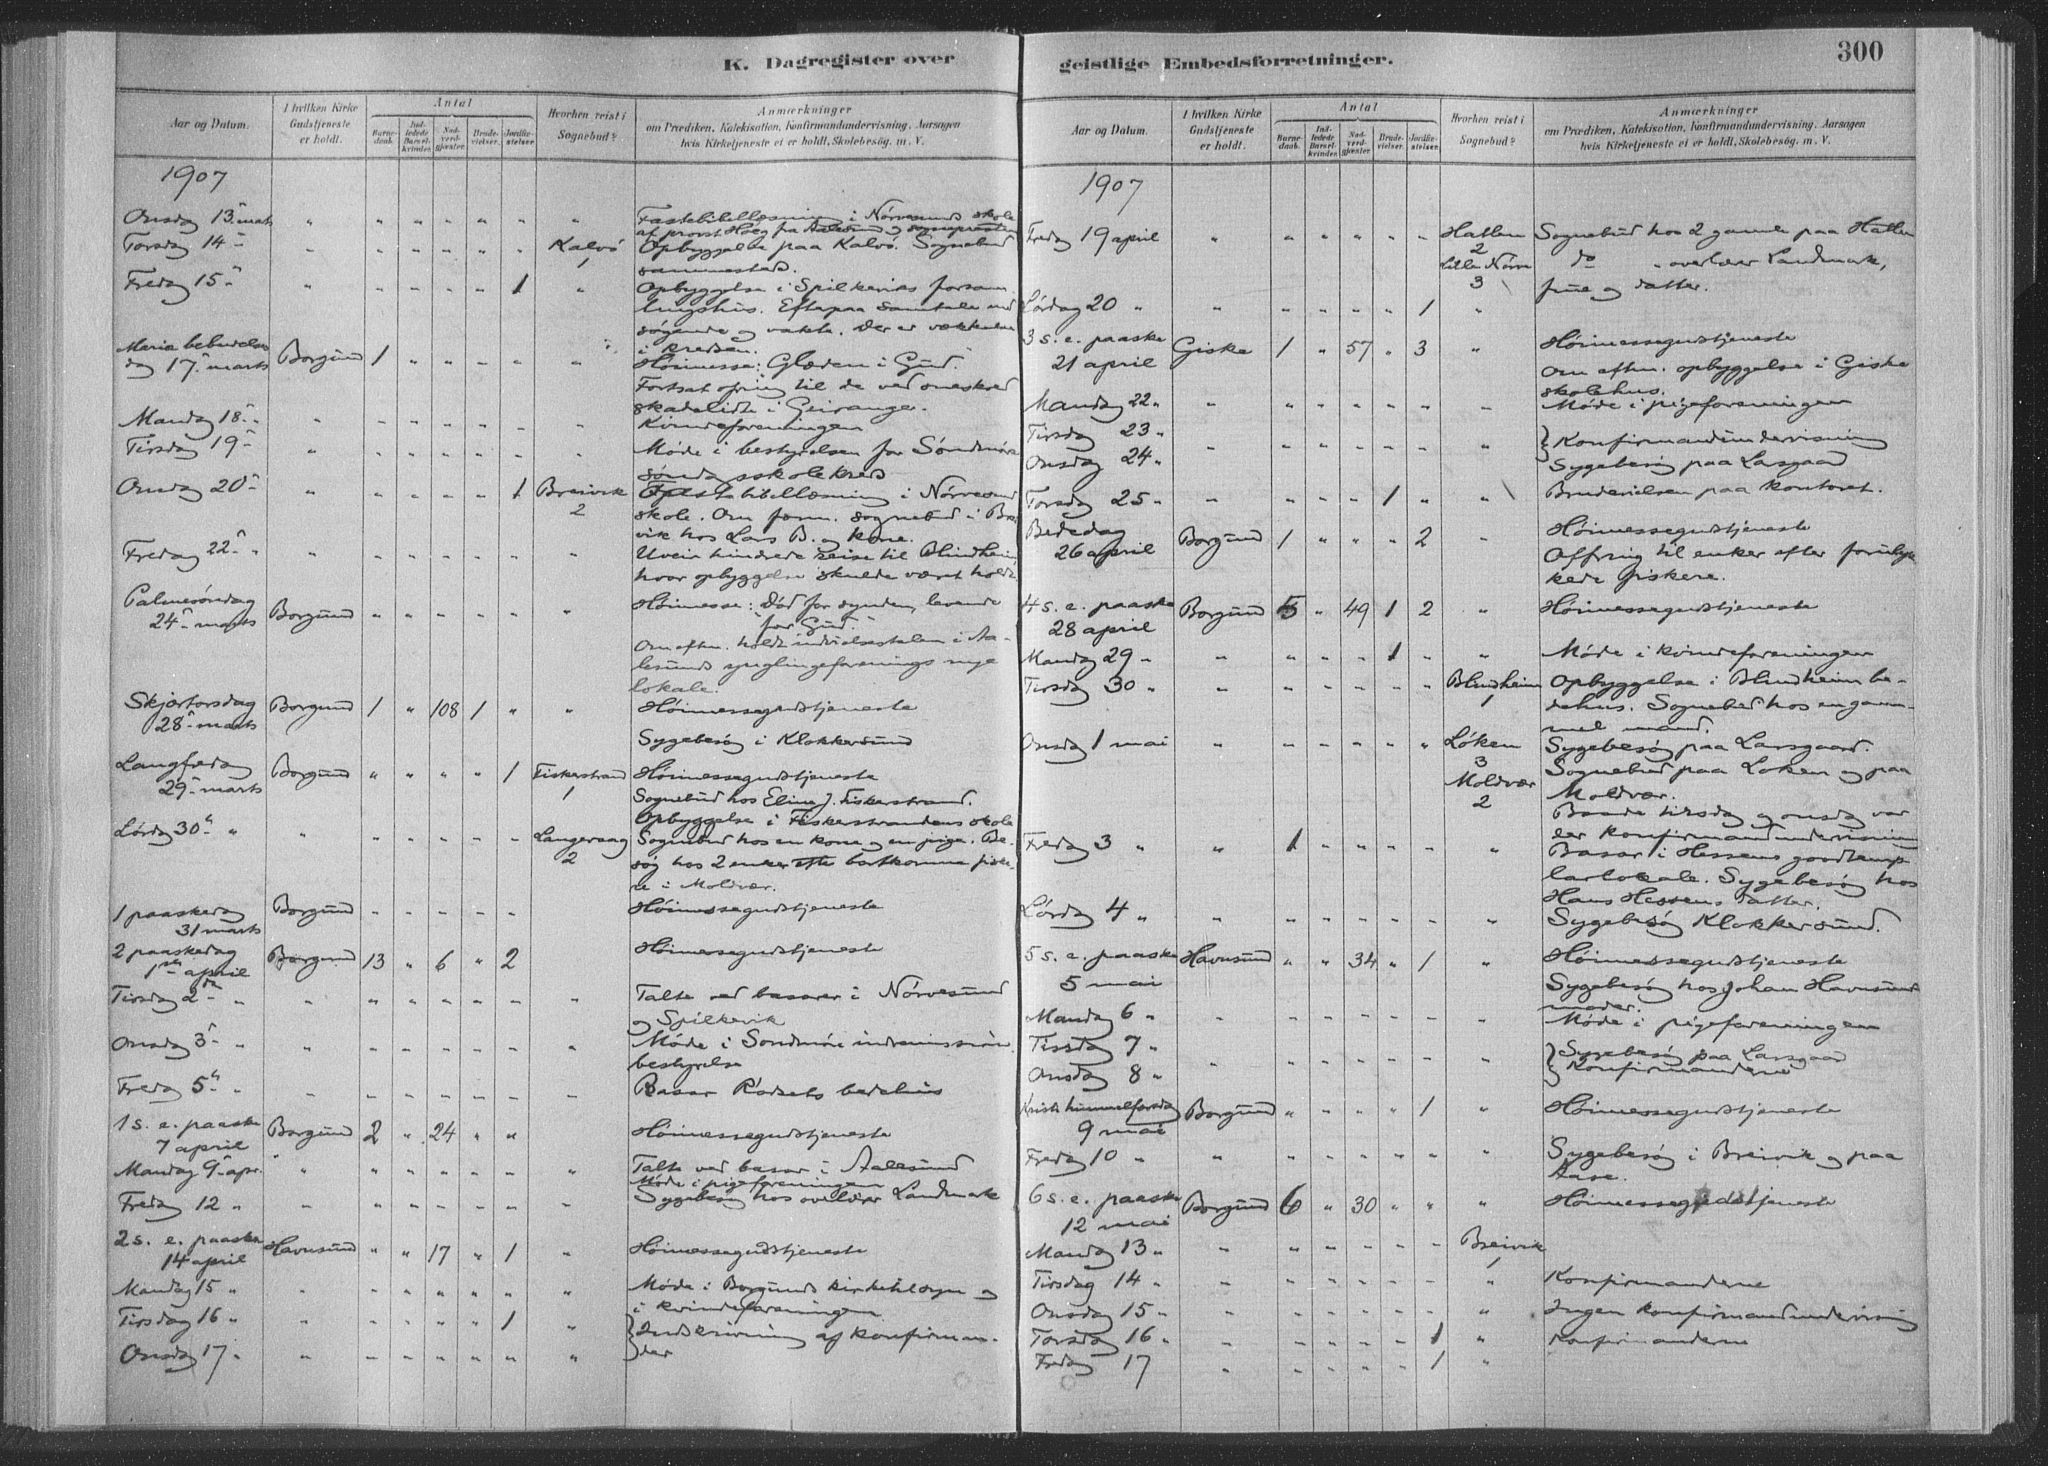 K. Dagregister over
Aar og Datum.
I hvilken Kirke Gudstjeneste er holdt.
Antal
Barnedaab.
Indledede Barselkvinder.
Nadverdgjæster.
Brudevielser.
Jordfæstelser.
Hvorhen reist i Sognebud?
Anmærkninger
om Prædiken, Katekisation, Konfirmandundervisning, Aarsagen
hvis Kirketjeneste ei er holdt, Skolebesøg, m. V.
1907
Onsdag 13. mars " " " " " " " Fastebibellæsning i Nørvesunds skole
af provst Høeg fra Aalesund og sognepresten
Torsdag 14 " " " " " " Kalvø 1 Opbyggelse paa Kalvø. Sognebud
sammesteds.
Fredag 15 " " " " " 1 " Opbyggelse i Spilkeviks forsam
lingshus. Efterpaa samtale med
søgende og vakte. Der er vækkelse
i kredsen.
Maria bebudelses
dag 17. marts Borgund 1 " " " " " Høimesse: Glæden i Gud.
Fortsat ofring til de ved sneskred
skadelidte i Geiranger.
Mandag 18 " " " " " " " Kvindeforeningen
Tirsdag 19 " " " " " " " Møde i bestyrelsen for Søndmøre
søndagsskolekreds
Onsdag 20 " " " " " 1 Breivik 2 Fastebibellæsning i Nørvesund
skole. Om form. sognebud i Brei
vik hos Lars B. og kone.
Fredag 22 " " " " " " " Uveir hindrede reise til Blindheim
hvor opbyggelse skulde været holdt
Palmesøndag
24 marts Borgund " " " " " " Høimesse: Død for synden, levende
for Gud.
Om eftm. holdt indvielsestalen i Aa-
lesunds ynglingeforenings nye
lokale.
Skjærtorsdag
28 marts Borgund 1 " 108 1 " " Høimessegudstjeneste
Sygebesøg i Klokkersund
Langfredag
29 marts Borgund " " " " 1 Fiskerstrand 1 Høimessegudstjeneste
Sognebud hos Eline J. Fiskerstrand.
Opbyggelse i Fiskerstrandens skole
Lørdag 30 " " " " " " Langevaag 2 Sognebud hos en kone og en pige. Be-
søg hos 2 enker efter bortkomne fiske
re i Moldvær.
1 paaskedag
31 marts Borgund " " " " " Høimessegudstjeneste
2 paaskedag
1ste april Borgund 13 " 6 " 2 Høimessegudstjeneste
Tirsdag 2 " " " " " " " " Talte ved basarer i Nørvesund
og Spilkevik
Onsdag 3 " " " " " " " " Møde i Søndmøre indremissions
bestyrelse
Fredag 5 " " " " " " " " Basar Rødsets bedehus
1 s. e. paaske
7 april Borgund 2 " 24 " " Høimessegudstjeneste
Mandag 9 apr. " " " " " " " Talte ved basar i Aalesund
Møde i pigeforeningen
Fredag 12 " " " " " " " " Sygebesøg hos overlærer Landmark
2 s. e. paaske
14 april Havnsund " " 17 " 1 " Høimessegudstjeneste
Mandag 15 " " " " " " " " Møde i Borgunds kirketilsyn og
i kvindeforeningen
Tirsdag 16 " " " " " " 1 " Indskrivning af konfirman-
Onsdag 17 " " " " " " " " der
geistlige Embedsforretninger.
300
Aar og Datum.
I hvilken Kirke Gudstjeneste er holdt.
Antal
Barnedaab.
Indledede Barselkvinder.
Nadverdgjæster.
Brudevielser.
Jordfæstelser.
Hvorhen reist i Sognebud?
Anmærkninger
om Prædiken, Katekisation, Konfirmandundervisning, Aarsagen
hvis Kirketjeneste ei er holdt, Skolebesøg, m. V.
1907
Fredag 19 april " " " " " " Hatlen 2 Sognebud hos 2 gamle paa Hatlen
Lille Nørve 3 do " overlærer Landmark,
frue og datter.
Lørdag 20 " " " " " " 1 "
3 s. e. paaske
21 april Giske 1 " 57 " 3 " Høimessegudstjeneste
Om eftm. opbyggelse i Giske
skolehus.
Mandag 22 " " " " " " " " Møde i pigeforeningen
Tirsdag 23 "
Onsdag 24 " " " " " " " " Konfirmandundervisning
Sygebesøg paa Larsgaard
Torsdag 25 " " " " " 1 " " Brudevielsen paa kontoret.
Bededag
26 april Borgund 1 " " " 2 " Høimessegudstjeneste
Offring til enker efter forulyk
kede fiskere.
4 s. e. paaske
28 april Borgund 5 " 49 1 2 " Høimessegudstjeneste
Mandag 29 " " " " " 1 " " Møde i kvindeforeningen
Tirsdag 30 " " " " " " " Blindheim 1 Opbyggelse i Blindheim be-
dehus. Sognebud hos en gam-
mel mand.
Onsdag 1 mai " " " " " " Løken 3 Sygebesøg paa Larsgaard.
Moldvær 2 Sognebud paa Løken og paa
Moldvær.
Baade tirsdag og onsdag var
der konfirmandundervisning
Fredag 3 " " 1 " " " " " Basar i Hessens goodtemp
larlokale. Sygebesøg hos
Hans Hessens datter.
Lørdag 4 " " " " " " " " Sygebesøg Klokkersund.
5 s. e. paaske
5 mai Havnsund " " 34 " 1 " Høimessegudstjeneste
Sygebesøg hos Johan Havnsunds
moder.
Mandag 6 " " " " " " " " Møde i pigeforeningen
Tirsdag 7 "
Onsdag 8 " " " " " " " " Sygebesøg paa Larsgaard
Konfirmanderne
Kristi himmelfartsdag
9 mai Borgund " " " " 1 " Høimessegudstjeneste
Fredag 10 " " " " " " " " Sygebesøg i Breivik og paa
Aase.
6 s. e. paaske
12 mai Borgund 6 " 30 " " " Høimessegudstjeneste
Mandag 13 " " " " " " " Breivik 1
Tirsdag 14 " " " " " " " " Konfirmanderne
Onsdag 15 " " " " " " " " Ingen konfirmandundervisning
Torsdag 16 " " " " " " 1 " Konfirmanderne
Fredag 17 " " " " " 1 "